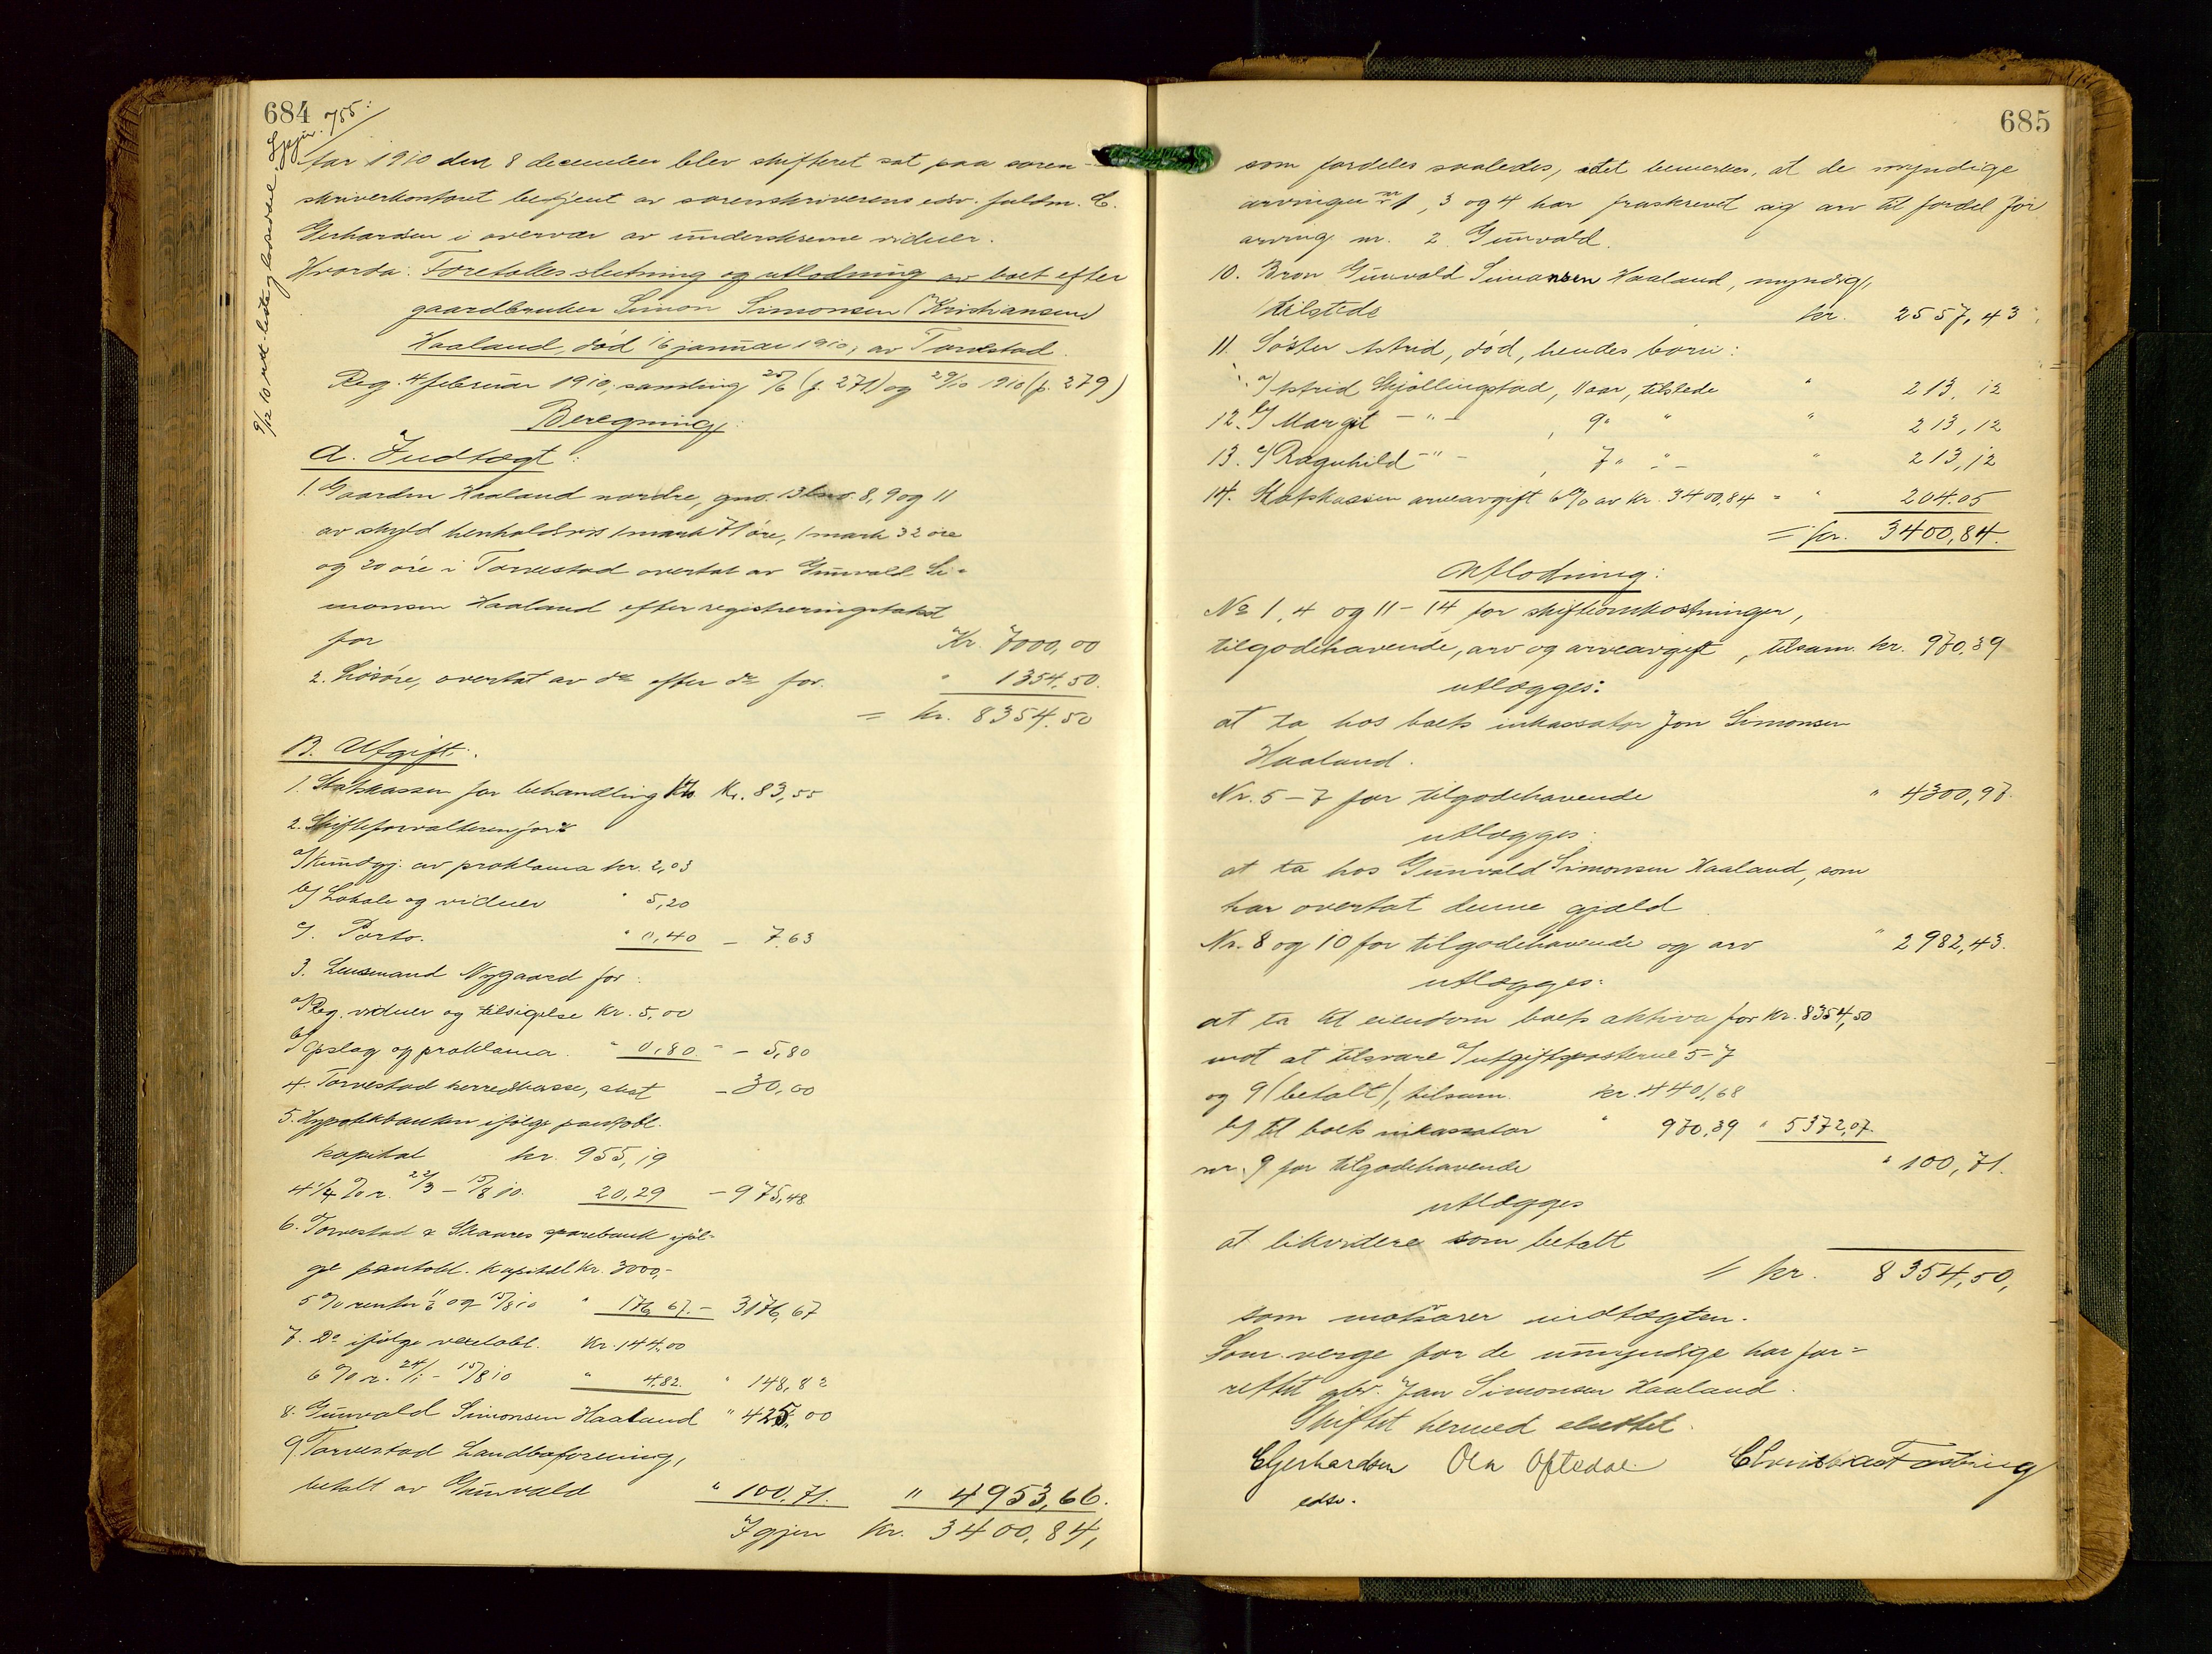 684
755:
9/12 10 utl. liste og
Aar 1910 den 8 december blev skifteret sat paa soren-
skriverkontoret betjent av sorenskriverens edsv. fuldm. E.
Gerhardsen i overvær av underskrevne vidner.
Hvorda: Foretokes slutning og utlodning av boet efter
gaardbruker Simon Simonsen (Kristiansens)
Haaland, død 16 januar 1910, av Torvestad.
Reg. 4 februar 1910, samling 25/6 (p. 271) og 29/10 1910 (p. 279)
Beregning:
A. Indtægt:
1. Gaarden Haaland nordre, gno. 13 bno. 8, 9 og 11
av skyld henholdsvis 1 mark 71 øre, 1 mark 32 øre
og 20 øre i Torvestad overtat av Gunvald Si-
monsen Haaland efter registreringstakst
for Kr. 7000,00
2. Løsøre, overtat av do efter do for " 1354,50.
= kr. 8354,50
B. Utgift:
1. Statskassen for behandling Kr. 83,55
2. Skifteforvalteren for:
a/ Kundgj. av proklama kr. 2,03
b/ Lokale og vidner " 5,20
c/. Porto. " 0,40 – 7,63
3. Lensmand Nygaard for:
a/ Reg. vidner og tilsigelse Kr. 5,00
b/ Opslag og proklama. " 0,80 – 5,80
4. Torvestad herredkasse, skat – 30,00
5. Hypotekbanken ifølge pantobl.
kapital kr. 955,19
4 1/4 % r. 22/3 – 15/8 10. 20,29 – 975,48
6. Torvestad & Skaares sparebank iføl-
ge pantobl. Kapital kr. 3000,-
5 % renter 11/6 og 15/8 10 " 176,67. – 3176,67
7. Do ifølge vexelobl. Kr. 144,00
6 % r. 24/1 – 15/8 10 " 4,82. " 148,82
8. Gunvald Simonsen Haaland " 425,00
9/ Torvestad Landboforening,
betalt av Gunvald " 100,71. " 4953,66.
Igjen Kr. 3400,84,
685
som fordeles saaledes, idet bemerkes, at de myndige
arvinger nr 1, 3 og 4 har fraskrevet sig arv til fordel for
arving nr. 2 Gunvald.
10. Bror Gunvald Simonsen Haaland, myndig,
tilstede kr. 2557,43
11. Søster Astrid, død, hendes børn:
a/ Astrid Skjøllingstad, 11 aar, tilstede " 213,12
12. b/ Margit – " – , 9 " " " 213,12
13. c/ Ragnhild – " – , 7 " " – " 213,12
14. Statskassen arveavgift 6 % av kr. 3400,84 = " 204.05
= kr. 3400,84.
Utlodning:
No 1, 4 og 11–14 for skifteomkostninger,
tilgodehavende, arv og arveavgift, tilsam. kr. 970.39
utlægges:
at ta hos boets inkassator Jon Simonsen
Haaland.
Nr. 5–7 for tilgodehavende " 4300,97.
utlægges:
at ta hos Gunvald Simonsen Haaland, som
har overtat denne gjæld.
Nr. 8 og 10 for tilgodehavende og arv " 2982,43.
utlægges:
at ta til eiendom boets aktiva for kr. 8354,50
mot at tilsvare a/ utgiftsposterne 5–7
og 9 (betalt), tilsam. kr. 4401,68
b/ til boets inkassator " 970,39 " 5372,07.
nr. 9 for tilgodehavende " 100,71.
utlægges
at likvidere som betalt
// kr. 8354,50,
som motsvarer indtægten.
Som verge for de umyndige har for-
rettet gbr. Jan Simonsen Haaland.
Skiftet hermed sluttet.
EGerhardsen Ola Oftedal
edsv.